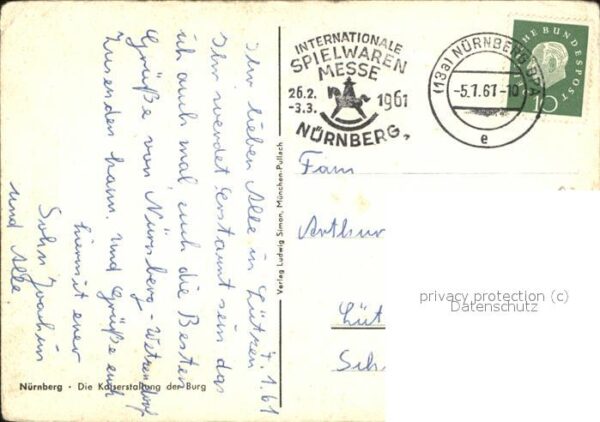 7.1.61
Ihr lieben Alle in Lützen
Ihr werdet Erstaunt sein das
ich auch mal euch die Besten
Grüße von Nürnberg-Wetzendorf
Zusenden kann. Und Grüße euch
hiermit euer
Sohn Joachim
und Alle.
Nürnberg - Die Kaiserstallung der Burg
Verlag Ludwig Simon, München-Pullach
INTERNATIONALE
SPIELWAREN
MESSE
26.2.
-3.3.
1961
NÜRNBERG
(13a) NÜRNBERG
-5.1.61-10
e
BUNDESPOST
10
Fam
Arthur
Lüt
Sch
privacy protection (c)
Datenschutz